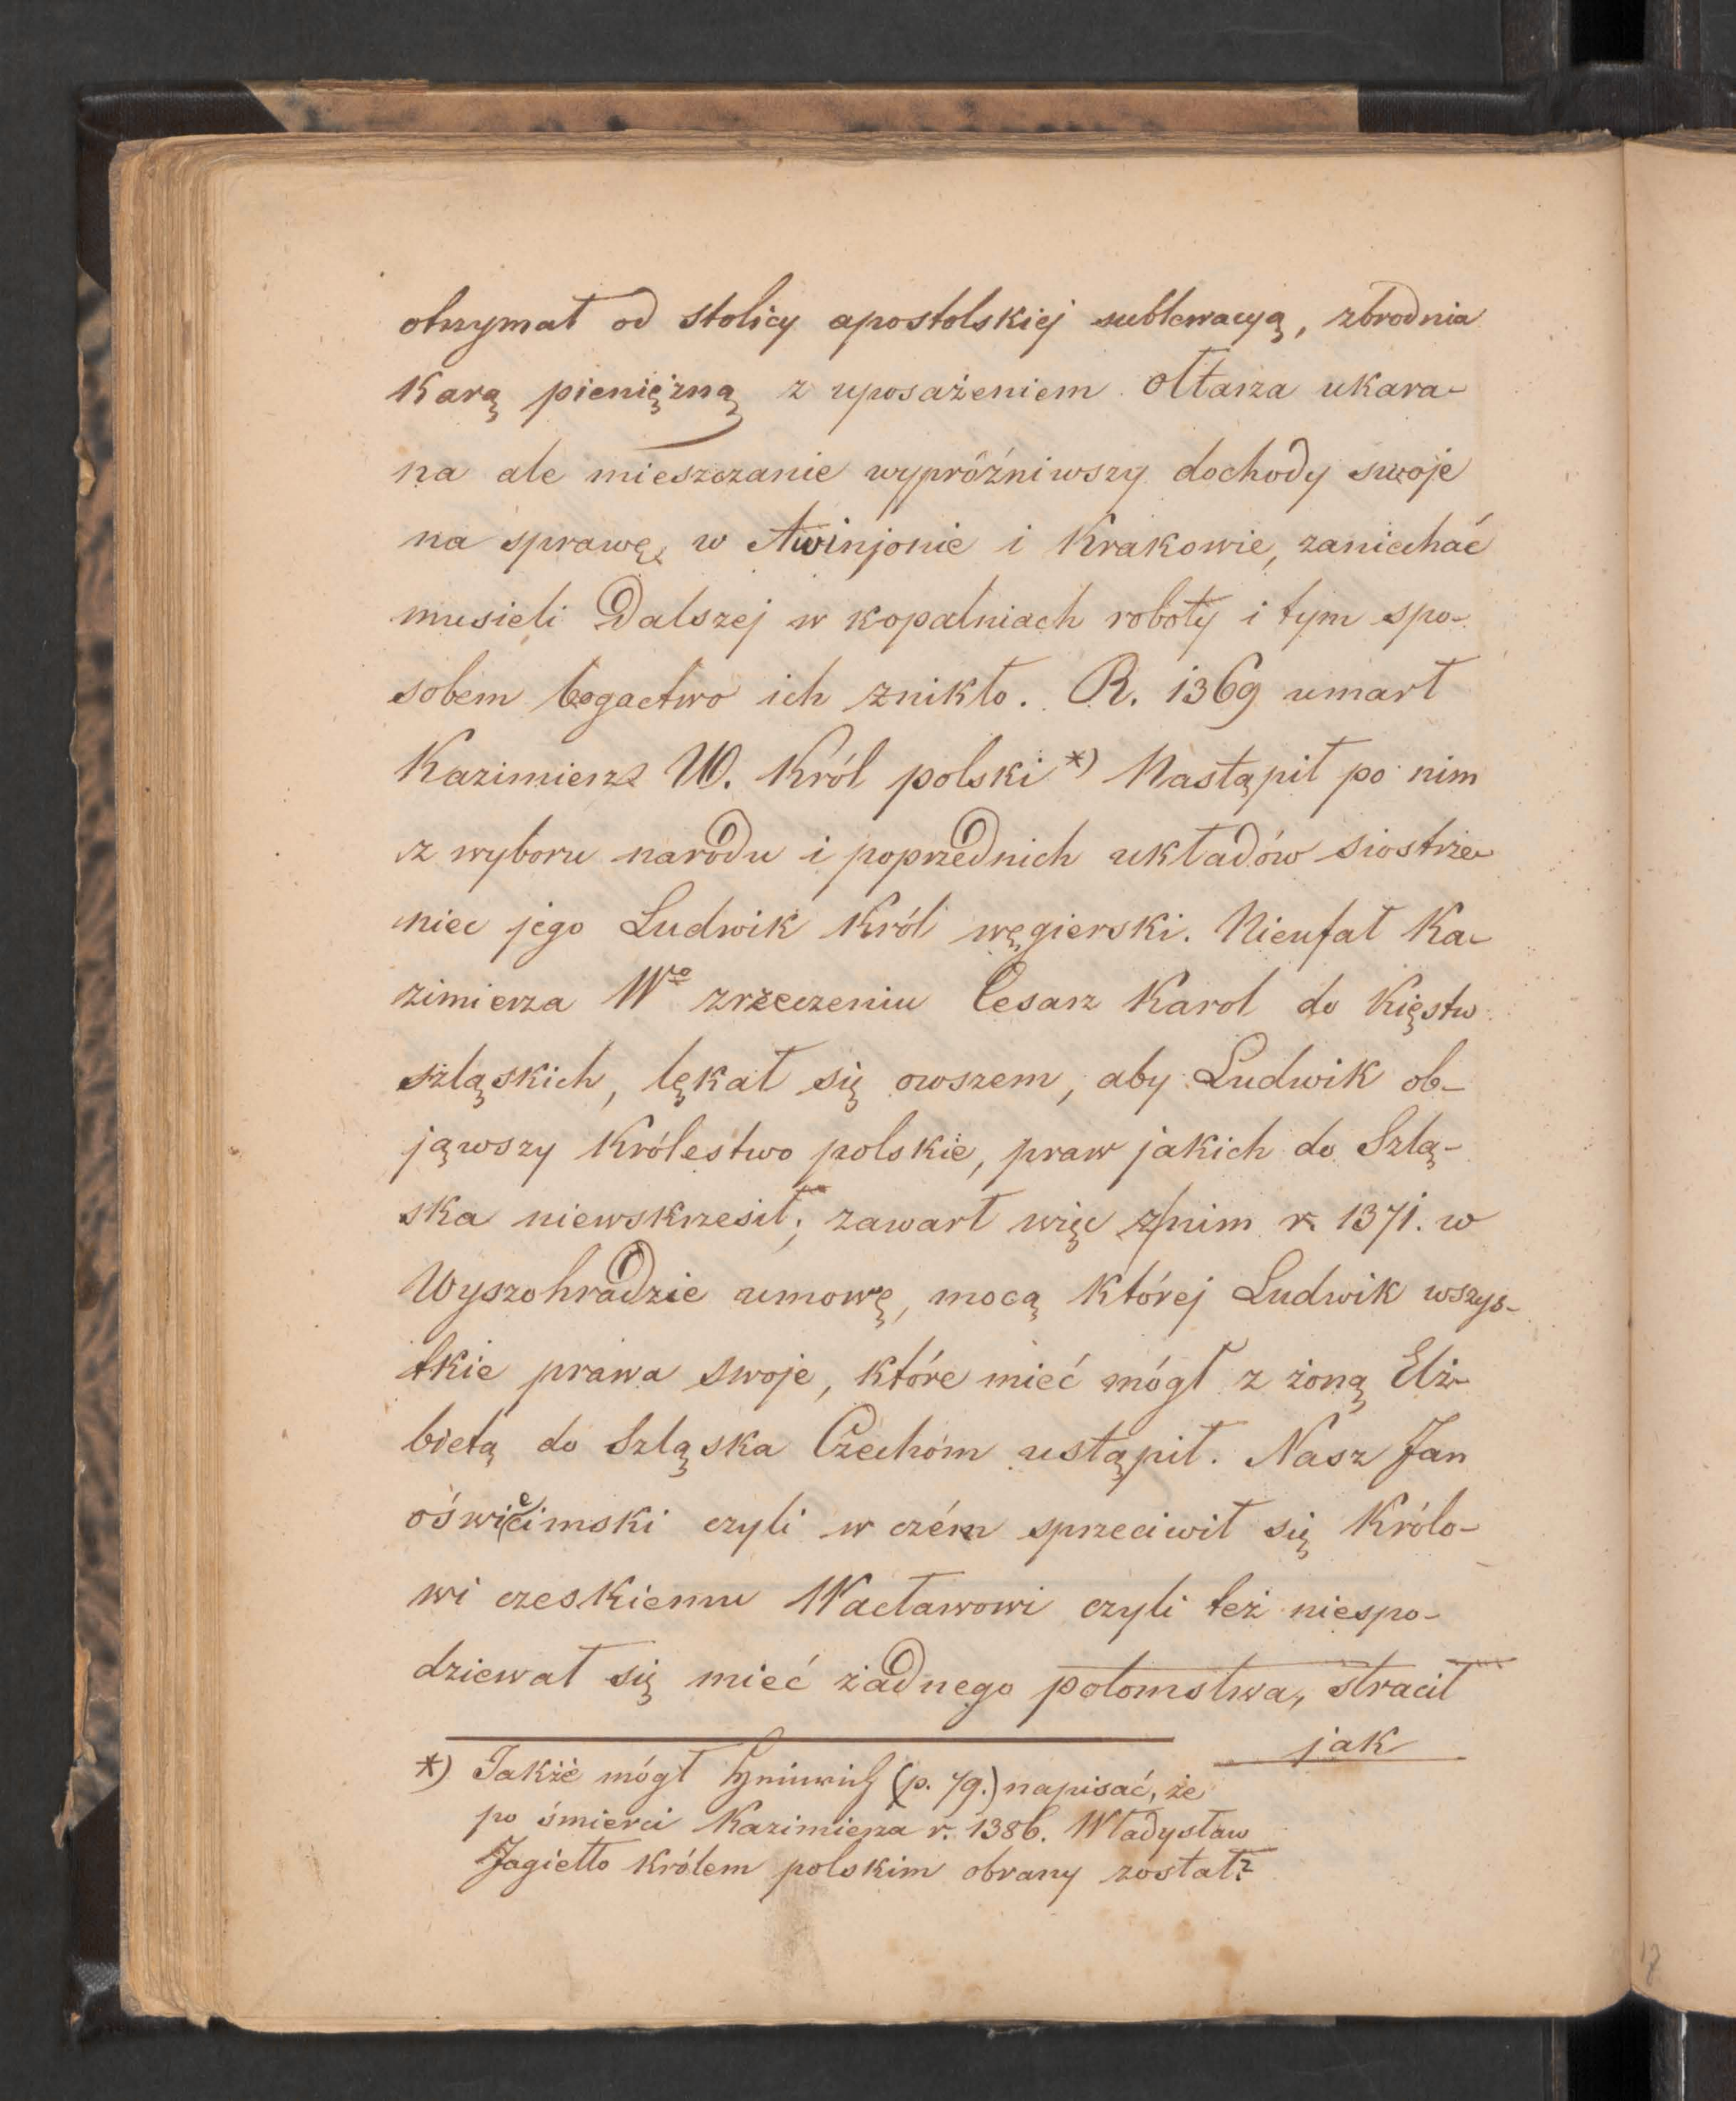 otrzymał od stolicy apostolskiej sublewacyą, zbrodnia
karą pieniężną z uposażeniem ołtarza ukara-
na ale mieszczanie wypróżniwszy dochody swoje
na sprawę w Awinjonie i Krakowie, zaniechać
musieli dalszej w kopalniach roboty i tym spo-
sobem bogactwo ich znikło. R. 1369 umarł
Kazimierz W. Król polski *) Nastąpił po nim
z wyboru narodu i poprzednich układów siostrze-
niec jego Ludwik Król węgierski. Nieufał Ka-
zimierza Wgo zrzeczeniu Cesarz Karol do Kięstw
szląskich, lękał się owszem, aby Ludwik ob-
jąwszy Królestwo polskie, praw jakich do Szlą-
ska niewskrzesił; zawarł więc z nim r. 1371. w
Wyszohradzie umowę, mocą której Ludwik wszys-
tkie prawa swoje, które mieć mógł z żoną Elż-
bietą do Szląska Czechóm ustąpił. Nasz Jan
oświecimski czyli w czém sprzeciwił się Królo-
wi czeskiemu Wacławowi czyli też niespo-
dziewał się mieć żadnego potomstwa, stracił
jak
*) Jakże mógł (p. 79.) napisać, że
po śmierci Kazimierza r. 1386. Władysław
Jagiełło królem polskim obrany został?